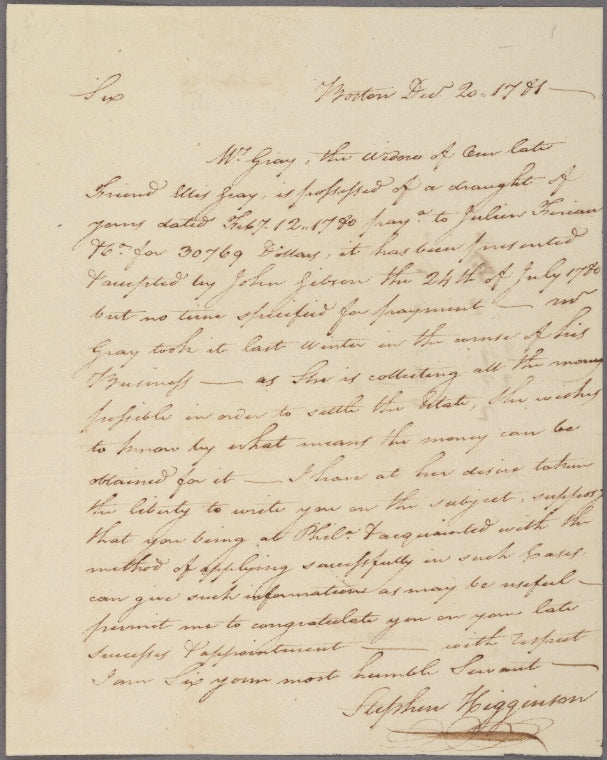 Sir Boston Decr 20.. 1781 —
Mrs Gray, the widow of Our late
Friend Ellis Gray, is possessed of a draught of
yours dated Feby. 12.. 1780 paya. to Julien
&Co. for 30769 Dollars, it has been presented
& accepted by John Gibson the 24th of July 1780
but no time specified for payment — mr
Gray took it last Winter in the course of his
Business — as She is collecting all the money
possible in order to settle the Estate, She wishes
to know by what means the money can be
obtained for it — I have at her desire taken
the liberty to write you on the subject, supposg
that you being at Phila. & acquainted with the
method of applying successfully in such Cases
can give such information as may be useful —
permit me to congratulate you on your late
success & appointment — with respect
I am Sir your most humble Servant —
Stephen Higginson